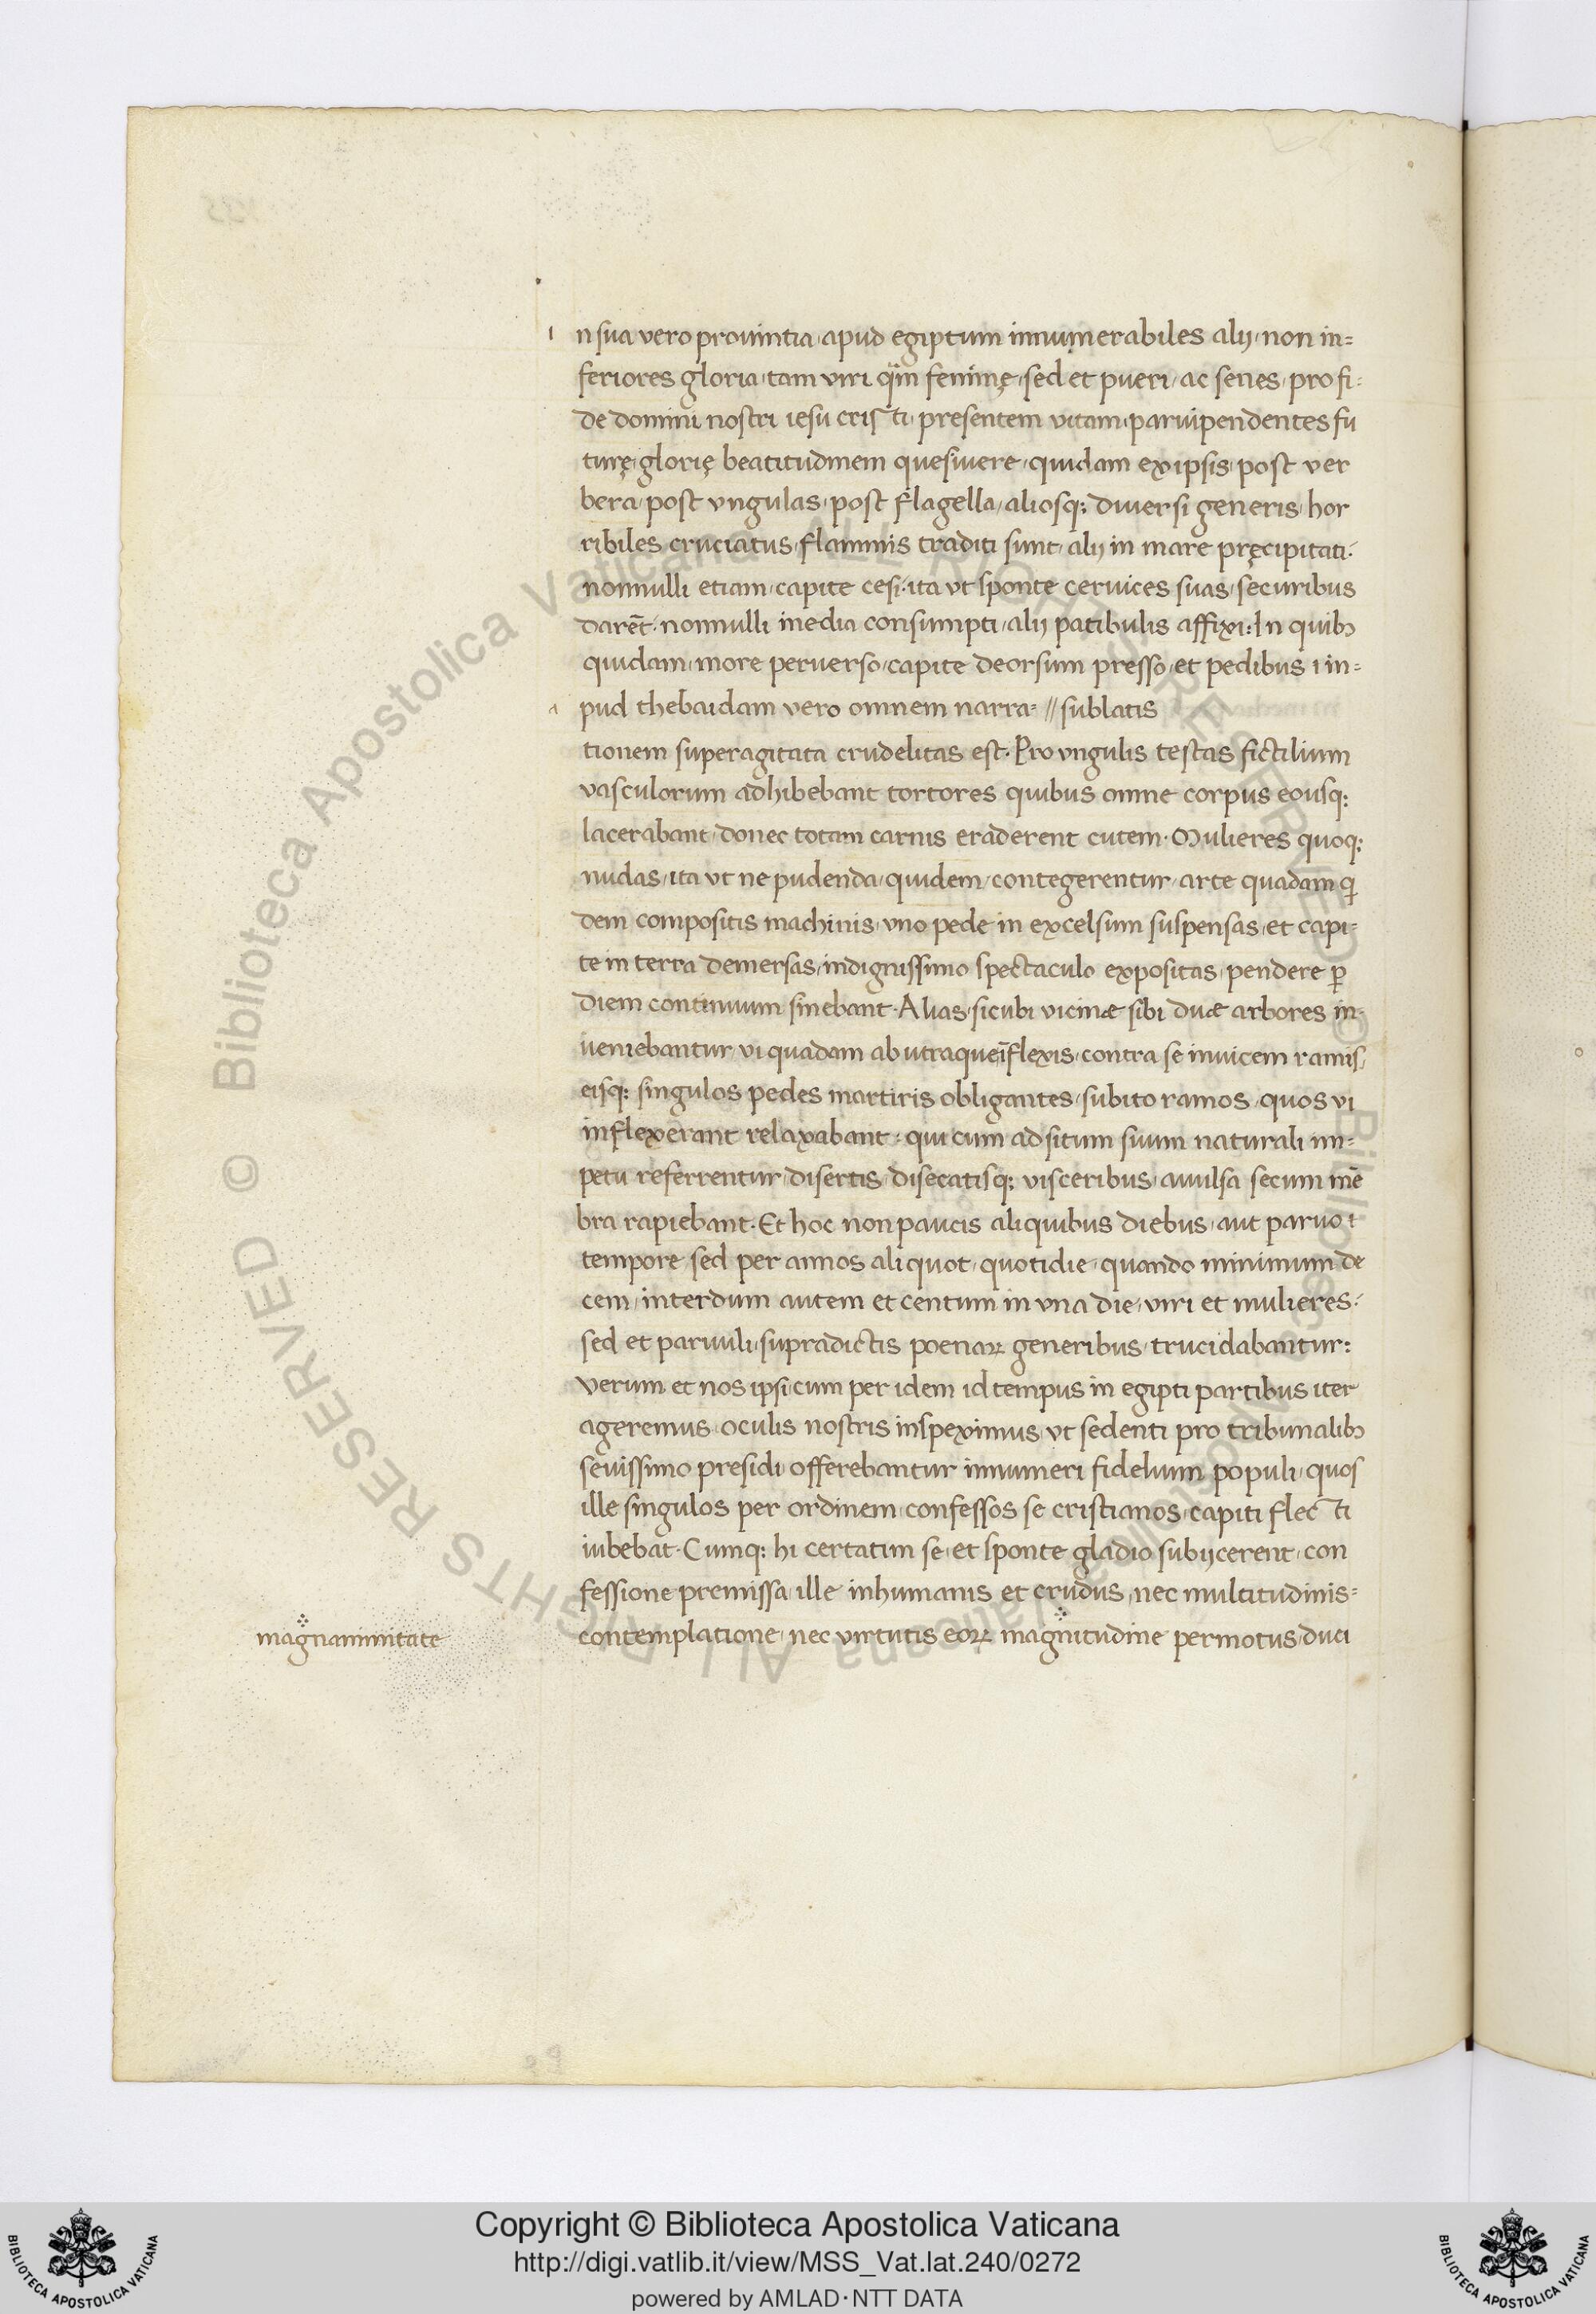 in sua vero prouintia, apud egiptum innumerabiles alij, non in=
feriores gloria, tam viri q̃m feminę, sed et pueri, ac senes, pro fi=
de domini nostri iesu cristi, presentem vitam, paruipendentes fu
turę, glorię beatitudinem quesiuere, quidam ex ipsis, post ver
bera, post vngulas, post flagella, aliosq; diuersi generis, hor
ribiles cruciatus, flammis traditi sunt, alij in mare pręcipitati.
nonnulli etiam, capite cesi. ita vt sponte ceruices suas, securibus
darēt. nonnulli inedia consumpti, alij patibulis affixi: In quibꝫ
quidam, more peruerso, capite deorsum presso, et pedibus i in=
apud thebaidam vero omnem narra= // sublatis
tionem superagitata crudelitas est. Pro vngulis testas fictilium
vasculorum adhibebant tortores quibus omne corpus eousq;
lacerabant, donec totam carnis eraderent cutem. Mulieres quoq;
nudas, ita vt ne pudenda, quidem, contegerentur, arte quadam q̃
dem compositis machinis, vno pede in excelsum suspensas, et capi=
te in terra demersas, indignissimo spectaculo expositas, pendere ꝑ
diem continuum sinebant. Alias, sicubi vicinæ sibi duæ arbores in=
ueniebantur, vi quadam ab utraque īflexis, contra se inuicem ramis,
eisq; singulos pedes martiris obligantes, subito ramos, quos vi
inflexerant relaxabant: qui cum ad situm suum naturali im=
petu referrentur, disertis, disecatisq; visceribus, auulsa secum mē
bra rapiebant. Et hoc non paucis aliquibus diebus, aut paruo t
tempore sed per annos aliquot, quotidie, quando minimum de
cem, interdum autem et centum in vna die, viri et mulieres.
sed et paruuli, supradictis poenaꝝ generibus, trucidabantur:
verum et nos ipsi, cum per idem id tempus in egipti partibus iter
ageremus, oculis nostris inspeximus, vt sedenti pro tribunalibꝫ
seuissimo presidi, offerebantur innumeri fidelium populi, quos
ille singulos per ordinem, confessos se cristianos, capiti flecti
iubebat. Cumq; hi certatim se, et sponte gladio subijcerent, con
fessione premissa, ille inhumanus et crudus, nec multitudinis=
contemplatione, nec virtutis eoꝝ magnitudine permotus, duci
magnanimitate
Copyright © Biblioteca Apostolica Vaticana
http://digi.vatlib.it/view/MSS_Vat.lat.240/0272
powered by AMLAD·NTT DATA
BIBLIOTECA APOSTOLICA VATICANA
BIBLIOTECA APOSTOLICA VATICANA
© Biblioteca Apostolica Vaticana ALL RIGHTS RESERVED © Biblioteca Apostolica Vaticana ALL RIGHTS RESERVED